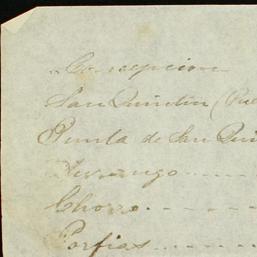 " Concepcion
San Quintin (Pue
Punta de San Qui
Durango - - - -
Chozo. - - - -
Porfias - - - -